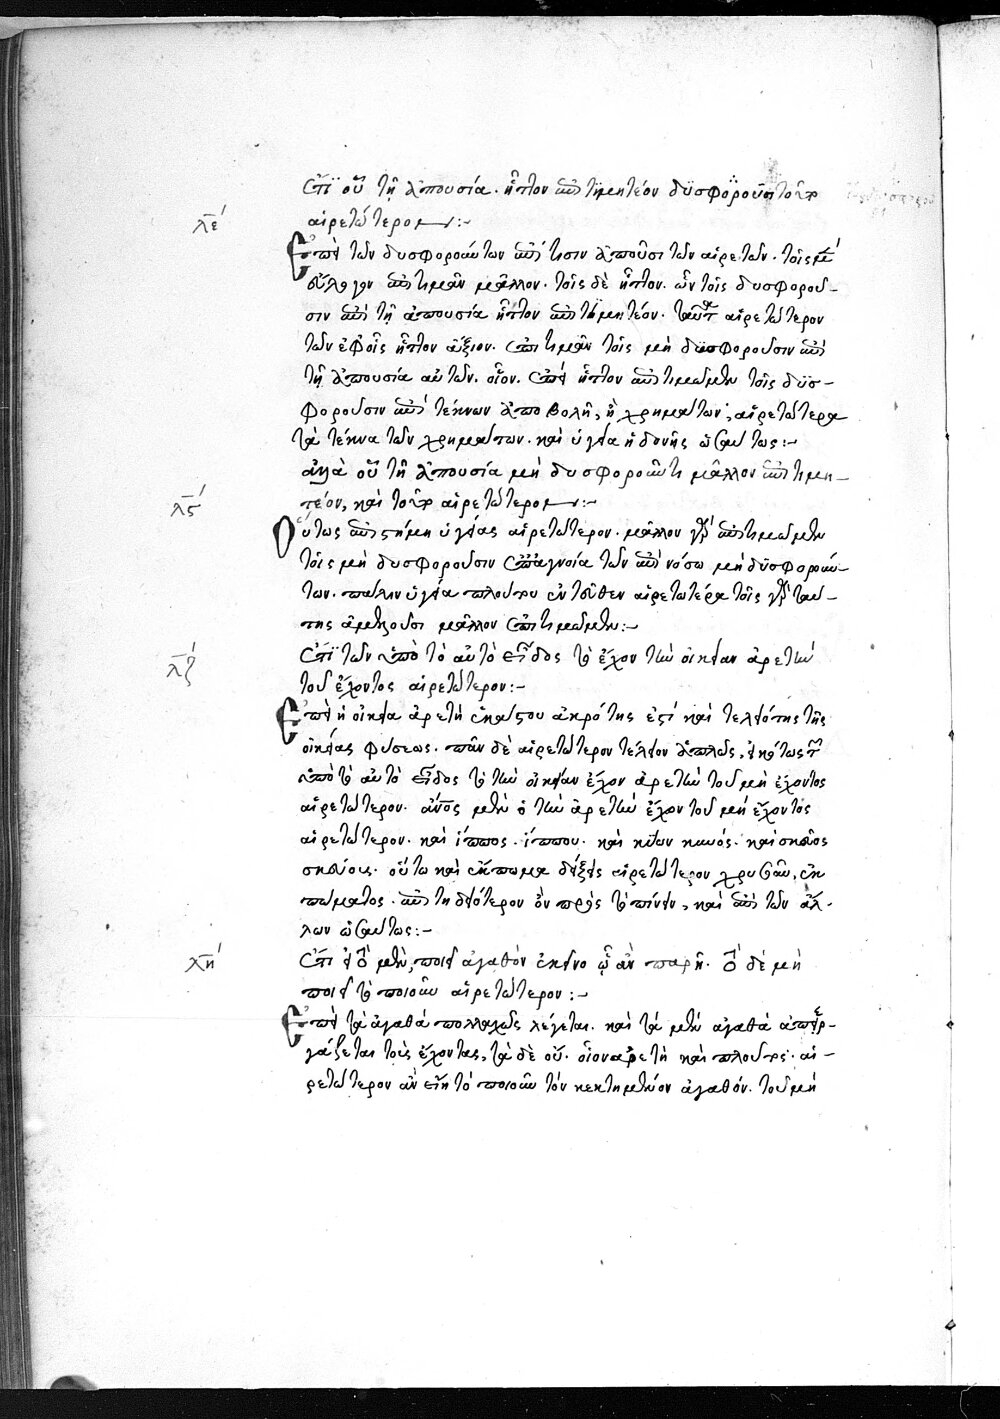 λε´
Ἔτι οὗ τῇ ἀπουσίᾳ ἧττον ἐπιτιμητέον δυσφοροῦσι τοῦτο
αἱρετώτερον:-
Ἐπεὶ τῶν δυσφορούντων ἐπί τισιν ἀποῦσι τῶν αἱρετῶν. τοῖς μὲν
εὔλογον ἐπιτιμᾶν μᾶλλον. τοῖς δὲ ἧττον. ὧν τοῖς δυσφοροῦ-
σιν ἐπὶ τῇ ἀπουσίᾳ ἧττον ἐπιτιμητέον. ταῦτα αἱρετώτερον
τῶν ἐφ' οἷς ἧττον ἄξιον. ἐπιτιμᾶν τοῖς μὴ δυσφοροῦσιν ἐπὶ
τῇ ἀπουσίᾳ αὐτῶν. οἷον. ἐπεὶ ἧττον ἐπιτιμῶμεν τοῖς δυσ-
φοροῦσιν ἐπὶ τέκνων ἀποβολῇ, ἢ χρημάτων, αἱρετώτερα
τὰ τέκνα τῶν χρημάτων. καὶ ὑγεία ἡδονῆς ὡσαύτως:-
λς´
ἀλλὰ οὗ τῇ ἀπουσίᾳ μὴ δυσφοροῦντι μᾶλλον ἐπιτιμη-
τέον, καὶ τοῦτο αἱρετώτερον:-
Οὕτως ἐπιστήμη ὑγείας αἱρετώτερον. μᾶλλον γὰρ ἐπιτιμῶμεν
τοῖς μὴ δυσφοροῦσιν ἐπ' ἀγνοίᾳ τῶν ἐπὶ νόσῳ μὴ δυσφορούν-
των. πάλιν ὑγεία πλούτου ἐντεῦθεν αἱρετωτέρα τοῖς γὰρ ταύ-
της ἀμελοῦσι μᾶλλον ἐπιτιμῶμεν:-
λζ´
Ἔτι τῶν ὑπὸ τὸ αὐτὸ εἶδος τὸ ἔχον τὴν οἰκείαν ἀρετὴν
τοῦ ἔχοντος αἱρετώτερον:-
Ἐπεὶ ἡ οἰκεία ἀρετὴ ἑκάστου ἀκρότης ἐστὶ καὶ τελειότης τῆς
οἰκείας φύσεως. πᾶν δὲ αἱρετώτερον τέλειον ἁπλῶς,
ὑπὸ τὸ αὐτὸ εἶδος τὸ τὴν οἰκείαν ἔχον ἀρετὴν τοῦ μὴ ἔχοντος
αἱρετώτερον. ἄνος μὲν ὁ τὴν ἀρετὴν ἔχον τοῦ μὴ ἔχοντος
αἱρετώτερον. καὶ ἵππος. ἵππου. καὶ κύων κυνός. καὶ σκεῦος
σκεύους. οὕτω καὶ ἔκπωμα δόξει αἱρετώτερον χρυσοῦν, ἐκ-
πώματος. ἐπιτηδειότερον ὂν πρὸς τὸ πίνειν, καὶ ἐπὶ τῶν ἄλ-
λων ὡσαύτως:-
λη´
Ἔτι εἰ ὃ μὲν, ποιεῖ ἀγαθὸν ἐκεῖνο ᾧ ἂν παρῇ. ὃ δὲ μὴ
ποιεῖ τὸ ποιοῦν αἱρετώτερον:-
Ἐπεὶ τὰ ἀγαθὰ πολλαχῶς λέγεται. καὶ τὰ μὲν ἀγαθὰ ἀπερ-
γάζεται τοὺς ἔχοντας, τὰ δὲ οὔ. οἷον ἀρετὴ καὶ πλοῦτος. αἱ-
ρετώτερον ἂν εἴη τὸ ποιοῦν τὸν κεκτημένον ἀγαθόν. τοῦ μὴ